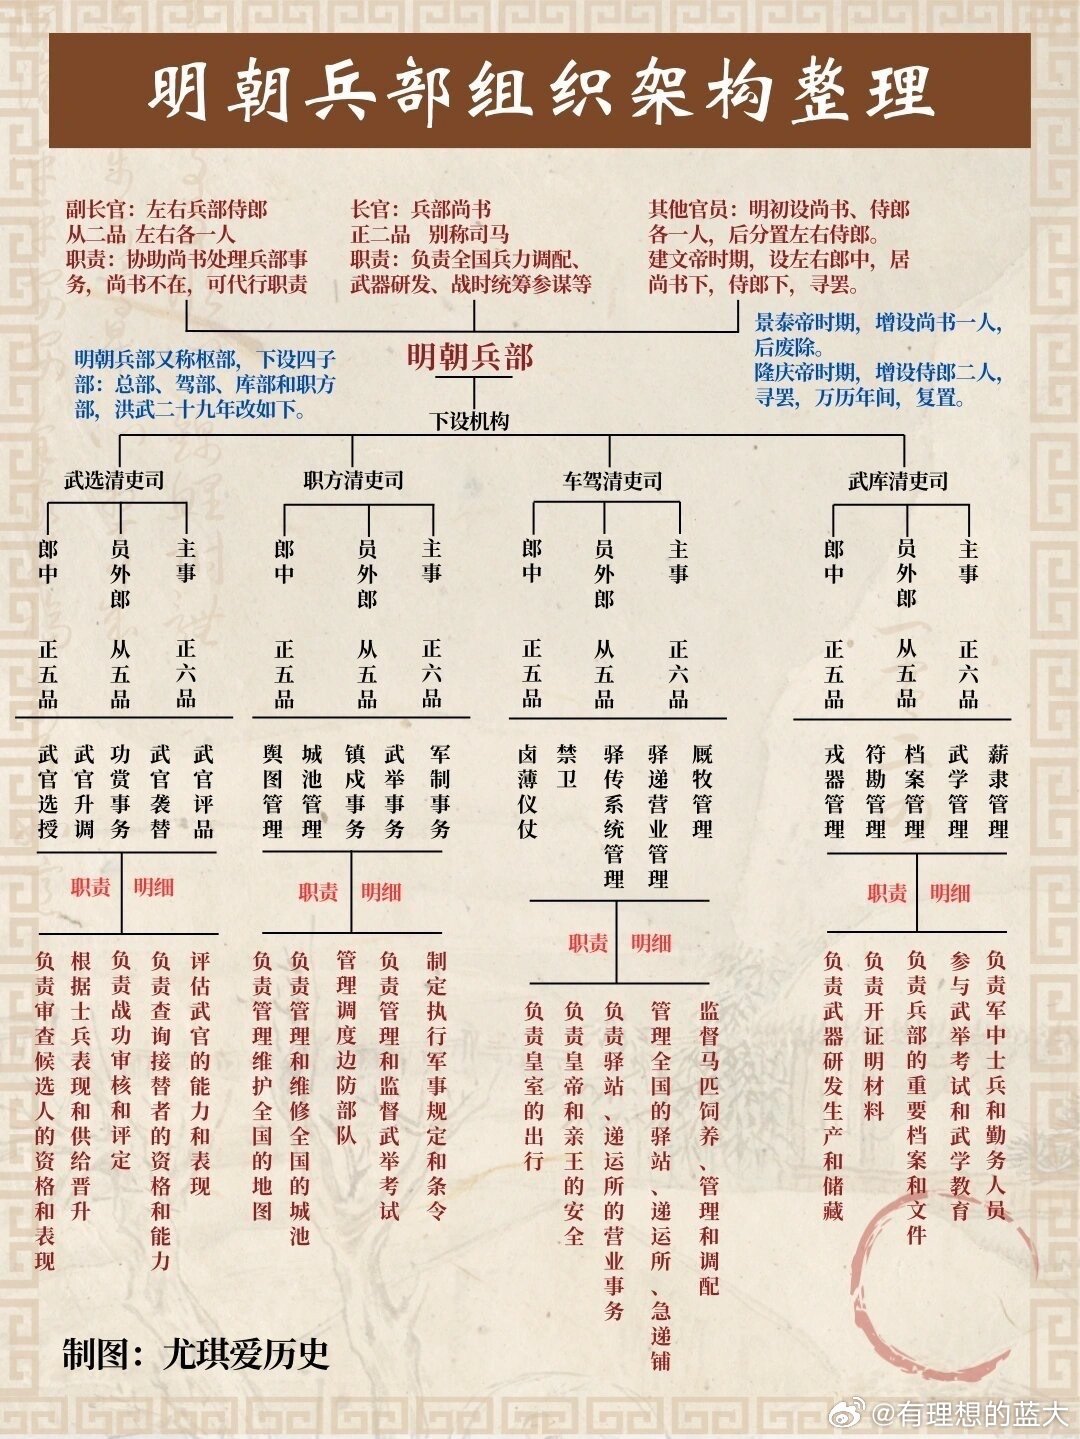 明朝兵部组织架构整理
副长官：左右兵部侍郎
从二品 左右各一人
职责：协助尚书处理兵部事
务，尚书不在，可代行职责
长官：兵部尚书
正二品 别称司马
职责：负责全国兵力调配、
武器研发、战时统筹参谋等
其他官员：明初设尚书、侍郎
各一人，后分置左右侍郎。
建文帝时期，设左右郎中，居
尚书下，侍郎下，寻罢。
景泰帝时期，增设尚书一人，
后废除。
隆庆帝时期，增设侍郎二人，
寻罢，万历年间，复置。
明朝兵部又称枢部，下设四子
部：总部、驾部、库部和职方
部，洪武二十九年改如下。
明朝兵部
下设机构
武选清吏司
郎中
员外郎
主事
正五品
从五品
正六品
武官选授
武官升调
功赏事务
武官袭替
武官评品
职责 明细
负责审查候选人的资格和表现
根据士兵表现和供给晋升
负责战功审核和评定
负责查询接替者的资格和能力
评估武官的能力和表现
职方清吏司
郎中
员外郎
主事
正五品
从五品
正六品
舆图管理
城池管理
镇戍事务
武举事务
军制事务
职责 明细
负责管理维护全国的地图
负责管理和维修全国的城池
管理调度边防部队
负责管理和监督武举考试
制定执行军事规定和条令
车驾清吏司
郎中
员外郎
主事
正五品
从五品
正六品
卤薄仪仗
禁卫
驿传系统管理
驿递营业管理
厩牧管理
职责 明细
负责皇室的出行
负责皇帝和亲王的安全
负责驿站、递运所的营业事务
管理全国的驿站、递运所、急递铺
监督马匹饲养、管理和调配
武库清吏司
郎中
员外郎
主事
正五品
从五品
正六品
戎器管理
符勘管理
档案管理
武学管理
薪隶管理
职责 明细
负责武器研发生产和储藏
负责开证明材料
负责兵部的重要档案和文件
参与武举考试和武学教育
负责军中士兵和勤务人员
制图：尤琪爱历史
@有理想的蓝大